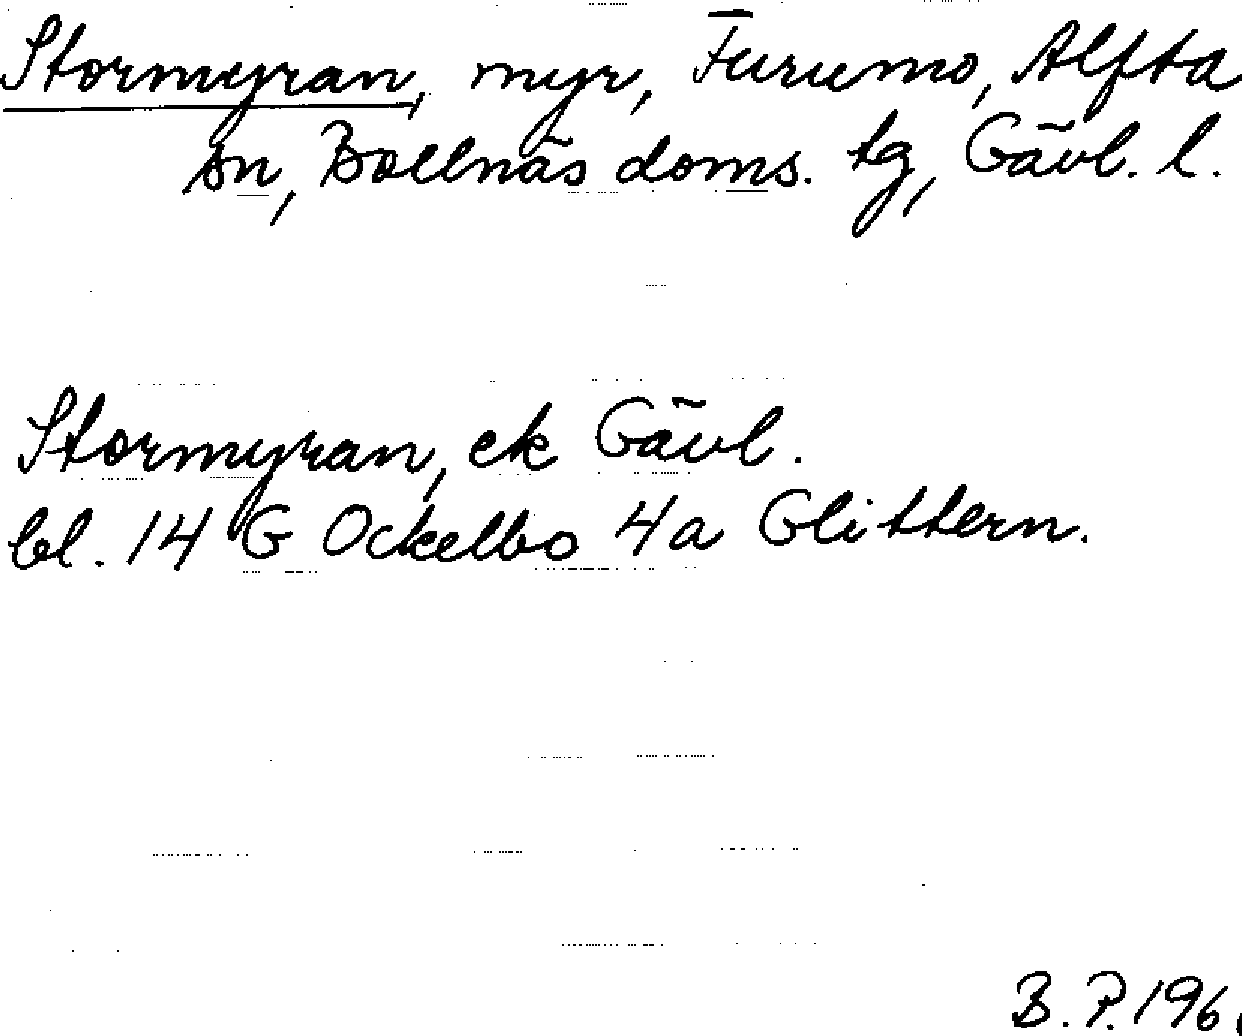 Stormyran, myr, Furumo, Alfta
sn, Bollnäs doms. tg, Gävl. l.
Stormyran, ek Gävl.
bl. 14 G Ockelbo 4a Glittern.
B. P. 196